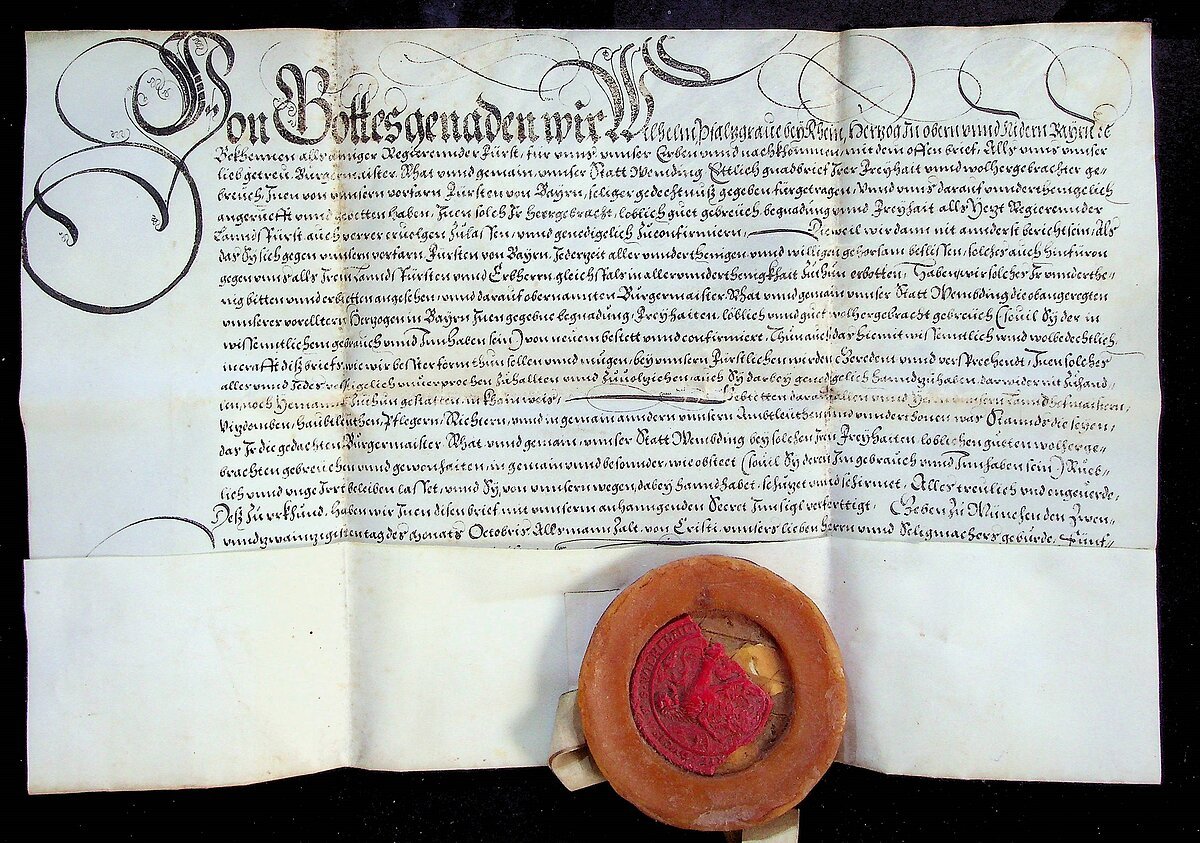 Von Gottes genaden wir Wilhelm Pfaltzgraue bey Rhein, Hertzog In obern vnnd Nidern Bayrn ꝛc
Bekhennen alls ainiger Regierennder Fürst, für vnns vnnser Erben vnnd nachkhommen, mit dem offen brief, Alls vnns vnnser
lieb getreu, Burgermaister, Rhat vnnd gemain, vnnser Statt Wembding, Ettlich gnadbrief Irer Freyhait vnnd wolhergebrachter ge-
breuch, Inen von vnnsern vorfarn, Fürsten von Bayrn, seliger gedechtnuß gegeben fürgetragen, Vnnd vnns darauf vnnderthenigelich
angerüefft vnnd gebetten haben, Inen solch Ir heergebracht, loblich guet gebreuch, begnadung vnnd Freyhait alls Yetzt Regierennder
Lannds Fürst, auch verrer eruolgen zulassen, vnnd genedigelich zuconfirmiern, Dieweil wir dann nit annderst bericht sein, Als
das Sy sich gegen vnnsern vorfarn Fürsten von Bayrn, Jederzeit aller vnnderthenigen, vnnd willigen gehorsam beflissen, solches auch hinfüron
gegen vnns alls Irem Lannds Fürsten vnnd Erbherrn gleichsfals in aller vnnderthenigkhait zuthun erbotten, Haben wir solches Ir vnnderthe-
nig bitten vnnd erbietten angesehen, vnnd darauf obernannten Burgermaister, Rhat vnnd gemain vnnser Statt Wembding die obangeregten
vnnserer vorelltern Hertzogen in Bayrn Inen gegebne begnadung, Freyhaiten, loblich vnnd guet wolhergebracht gebreuch (souil Sy der in
wissenntlichem gebrauch vnnd Innhaben sein) von neuem bestett vnnd confirmiert, Thun auch das hiemit wissenntlich vnnd wolbedechtlich
in crafft diß briefs, wie wir bester form thun sollen vnnd mügen, bey vnnsern Fürstlichen wirden, Geredem vnnd versprechendt, Inen solches
alles vnnd Jedes vesstigelich vnuerprochen zuhallten vnnd zuuolziehen, auch Sy darbey genedigelich hanndzuhaben, darwider nit zuhand-
len, noch Yemannd zuthun gestatten, in khain weis, Gebietten darauf allen vnnd Yeden vnnsern Lanndhofmaistern,
Vizdomben, Haubtleuthen, Pflegern, Richtern, vnnd in gemain anndern vnnsern Ambtleuthen vnnd vnnderthonen, was Stannds die seyen,
das Ir die gedachten Burgermaister, Rhat vnnd gemain, vnnser Statt Wembding bey solchen Iren Freyhaiten, loblichen gueten wolherge-
brachten gebreuchen vnnd gewonhaiten, in gemain vnnd besonder, wie obsteet (souil Sy deren Im gebrauch vnnd Innhaben sein) Rueb-
lich vnnd vngeIrrt beleiben lasset, vnnd Sy, von vnnsern wegen, dabey hanndhabet, schützet vnnd schirmet, Alles treulich vnd vngeuerde,
Deß zu vrkhund, Haben wir Inen disen brief mit vnnserm anhanngenden Secret Innsigl verfertigt, Geben zu München den Zwen-
vnndzwaintzigisten tag des Monats Octobris, Alls mann zalt, von Cristi vnnsers lieben herrn vnnd Seligmachers geburde, Fünf-